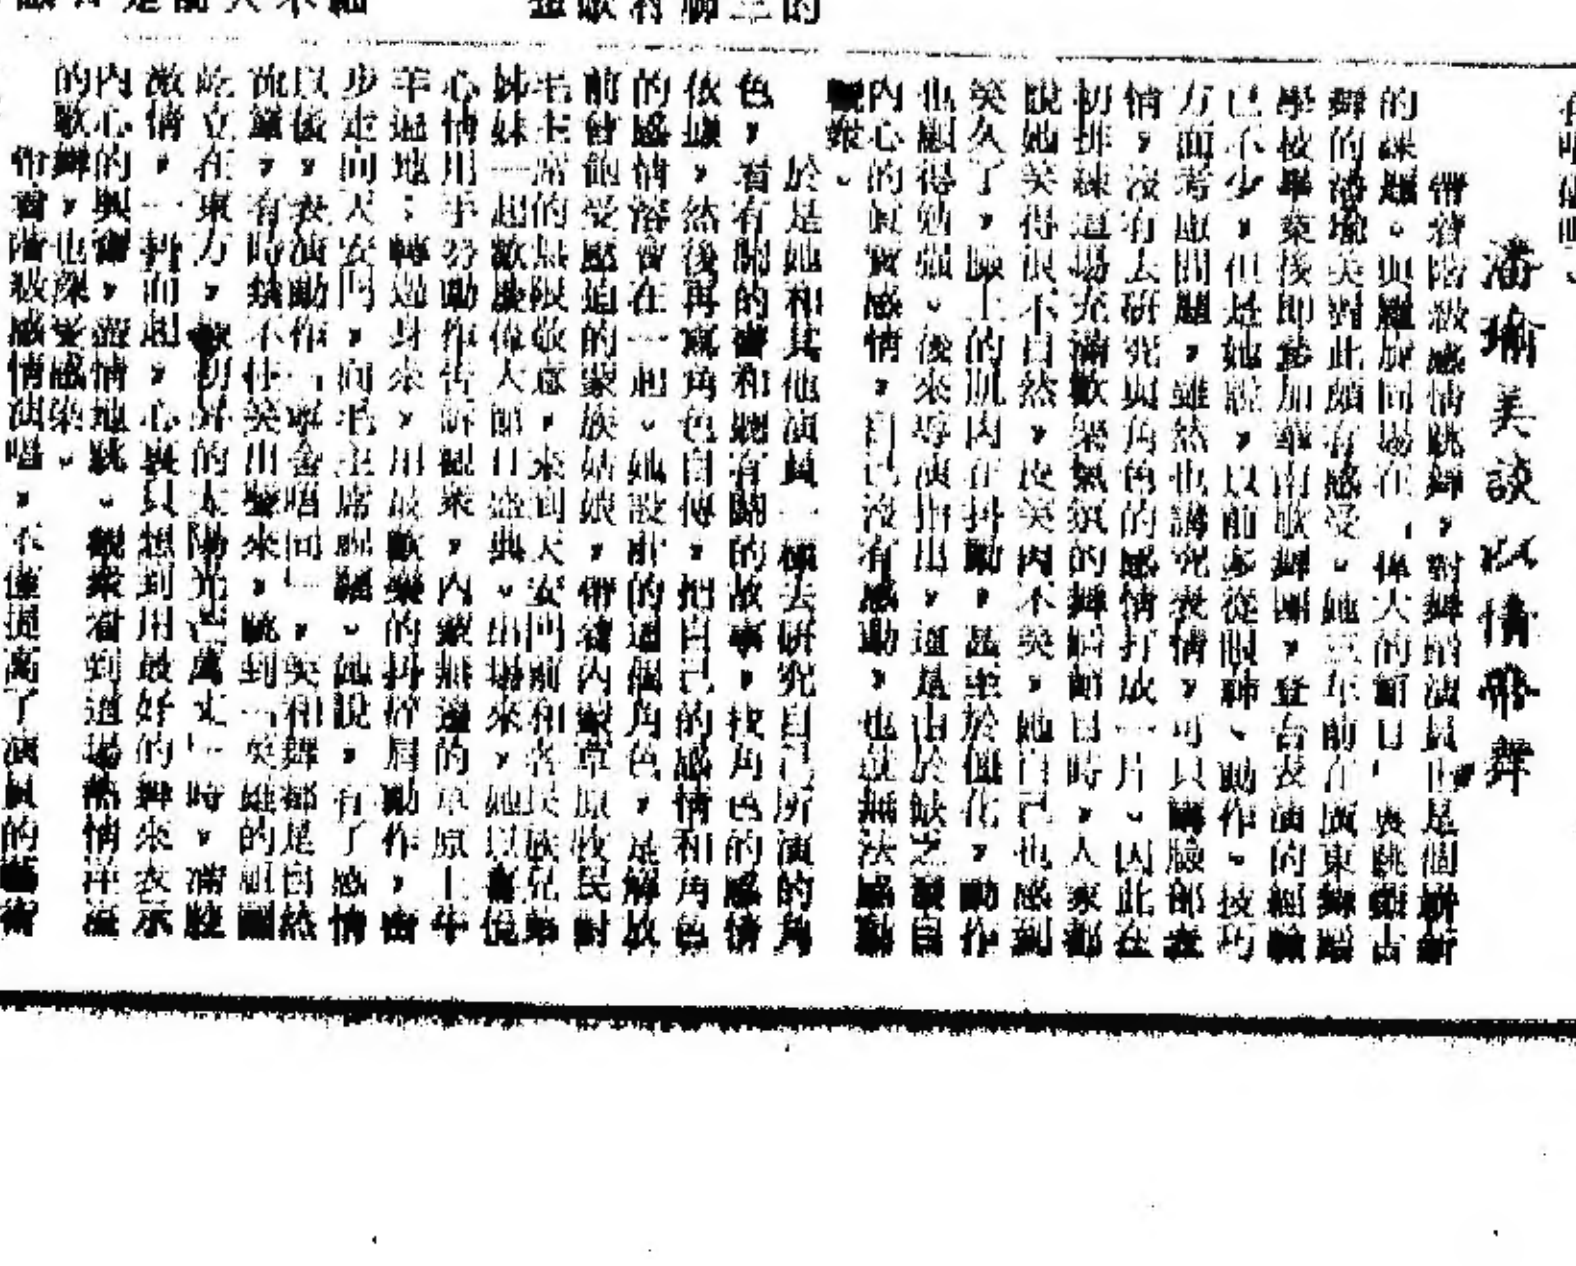 潘瑜美談以情帶舞
帶着階級感情跳舞，對舞蹈演員也是個嶄新
的課題。與羅廣同場在「偉大的節日」裏跳蒙古
舞的潘瑜美對此頗有感受。她三年前在廣東舞蹈
學校畢業後即參加華南歌舞團，登台表演的經驗
已不少，但是她說，以前多從眼神、動作、技巧
方面考慮問題，雖然也講究表情，可只講臉部表
情，沒有去研究與角色的感情打成一片。因此在
初排練這場充滿歡樂氣氛的舞蹈節目時，人家都
說她笑得很不自然，皮笑肉不笑，她自己也感到
笑久了，臉上的肌肉在抖動，甚至於僵化，動作
也顯得勉強。後來導演指出，這是由於缺乏發自
內心的眞實感情，自己沒有感動，也就無法感動
觀衆。
於是她和其他演員一樣去研究自己所演的角
色，看有關的書和聽有關的故事，找角色的感情
依據，然後再寫角色自傳，把自己的感情和角色
的感情溶會在一起。她設計的這個角色，是解放
前曾飽受壓迫的蒙族姑娘，帶着內蒙草原牧民對
毛主席的無限敬意，來到天安門前和各民族兄弟
姊妹一起歡慶偉大節日盛典。出場來，她以喜悅
心情用手勢動作告訴觀衆，內蒙無邊的草原上牛
羊遍地；轉過身來，用最歡樂的抖擀肩動作，密
步走向天安門，向毛主席祝福。她說，有了感情
以後，表演動作，寧舍唱同一，笑和舞都是自然
流露，有時禁不住笑出聲來，跳到「英雄的祖國
屹立在東方，像初昇的太陽光芒萬丈」時，滿腔
激情，一躬而起，心裏只想到用最好的舞來表示
內心的興奮，盡情地跳。觀衆看到這場熱情洋溢
的歌舞，也深受感染。
帶着階級感情演唱，不僅提高了演員的藝術